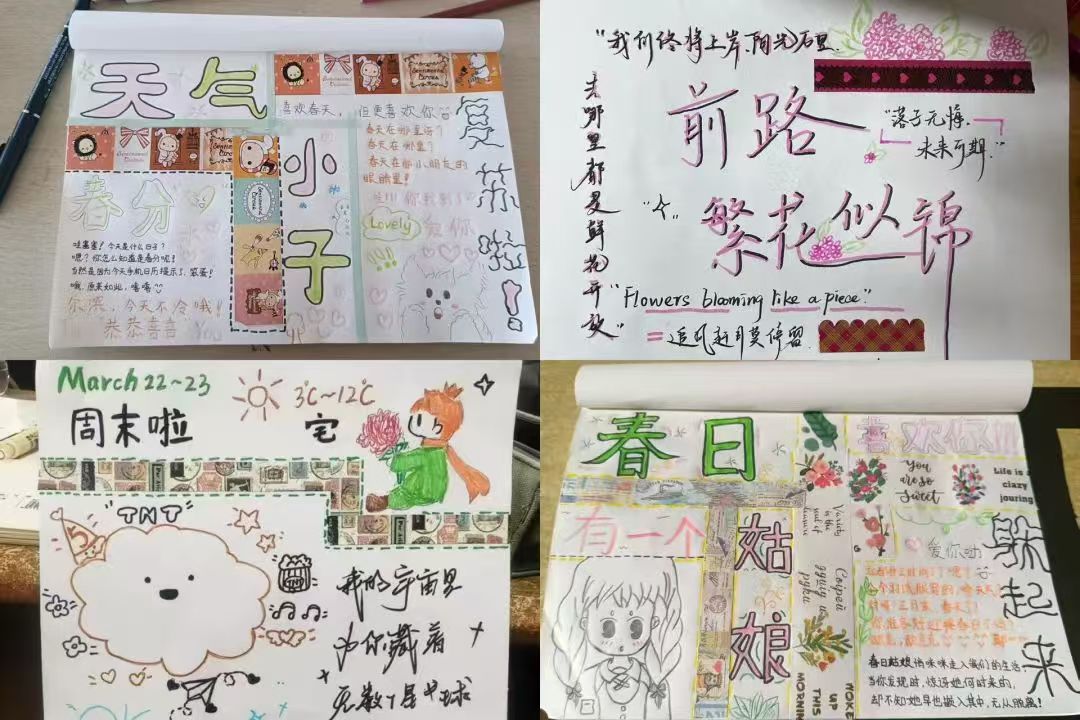 天气
小子
喜欢春天，但更喜欢你
春天在哪里呀？
春天在哪里？
春天在那小朋友的
眼睛里！
Lovely
爱你
春分
哇塞塞！今天是什么日子？
嗯？你怎么知道是春分呢！
当然是因为今天手机日历提示了，笨蛋！
哦，原来如此，嘻嘻
你滚，今天不冷哦！
恭恭喜喜
"我们终将上岸，阳光万里"
去哪里都是鲜花开放"
前路
繁花似锦
"落子无悔，
未来可期"
"Flowers blooming like a piece."
=追风赶月莫停留
March 22~23
3℃~12℃
周末啦
宅
"TNT"
5
我的宇宙里
为你藏着
无数个星球
春日
有一个
姑
娘
喜欢你!!!
You
are so
sweet
Life is a
crazy
jouring
爱你呦
躲起来
春日姑娘悄咪咪走入我们的生活
当你发现时，惊讶她何时来的，
却不知她早也嵌入其中，无从脱离！
WOKE
UP
THIS
MORNING